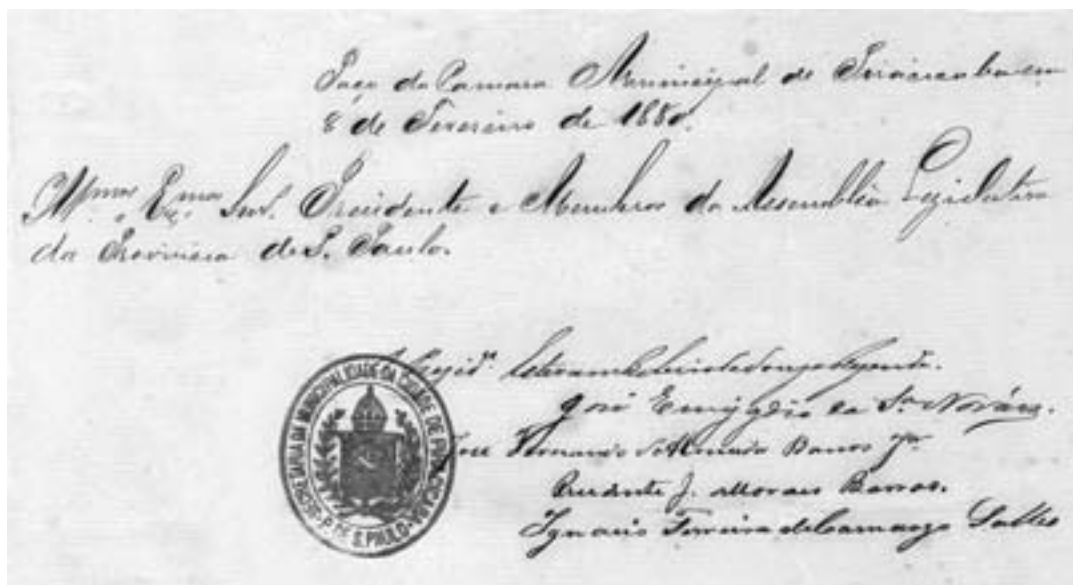 Paço da Camara Municipal de Piracicaba em
8 de Fevereiro de 1880.
Illmos e Exmos Snrs. Presidente e Membros da Assembléa Legislativa
da Provincia de S. Paulo.
José Emygdio da Sa Novaes.
José Fernando d'Almeida Barros Jor.
Prudente J. Moraes Barros.
Ignacio Ferreira de Camargo Salles
SECRETARIA DA MUNICIPALIDADE DA CIDADE DE PIRACICABA
P. DE S. PAULO